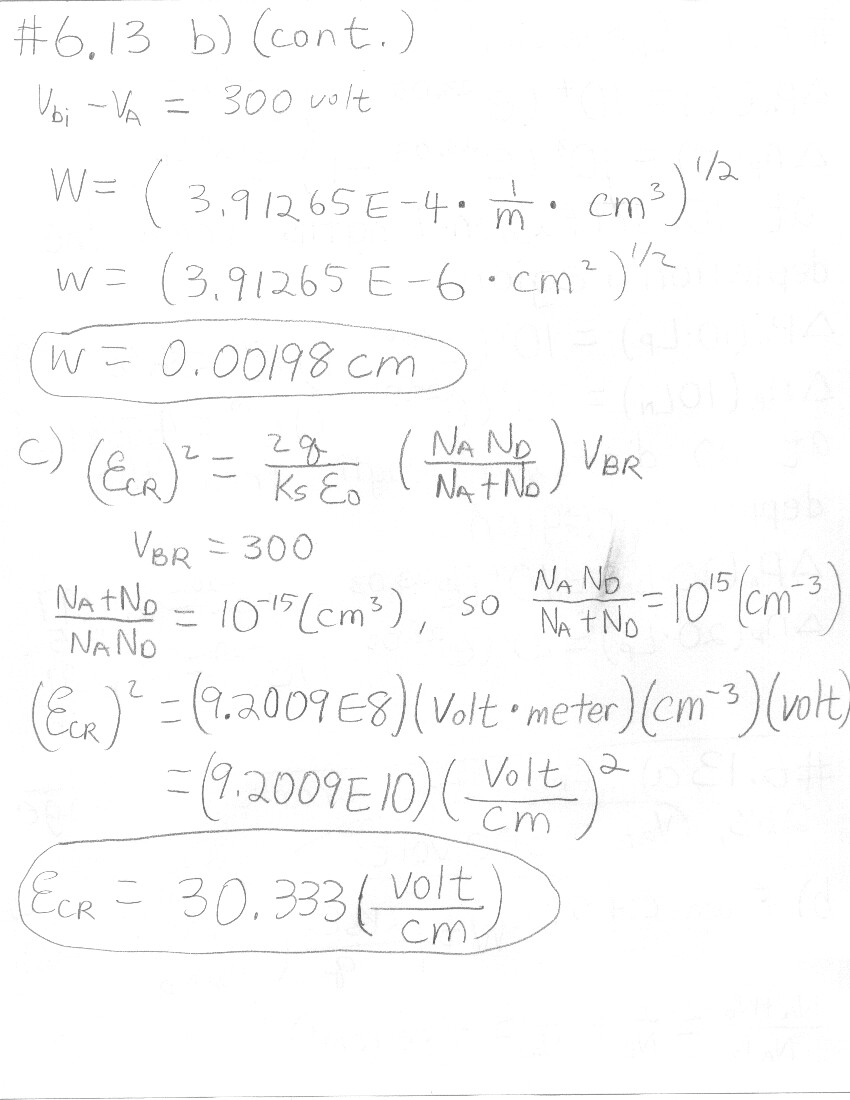 #6.13 b) (cont.)
V_bi - V_A = 300 volt
W = ( 3.91265E-4 · 1/m · cm³ )^1/2
W = (3.91265 E-6 · cm²)^1/2
W = 0.00198 cm
c) (ℰ_CR)² = 2q/(K_S ℰ_0) (N_A N_D/(N_A+N_D)) V_BR
V_BR = 300
(N_A+N_D)/(N_A N_D) = 10^-15 (cm³), so (N_A N_D)/(N_A+N_D) = 10^15 (cm^-3)
(ℰ_CR)² = (9.2009E8)(Volt·meter)(cm^-3)(volt)
= (9.2009E10)(Volt/cm)²
ℰ_CR = 30.333 (volt/cm)